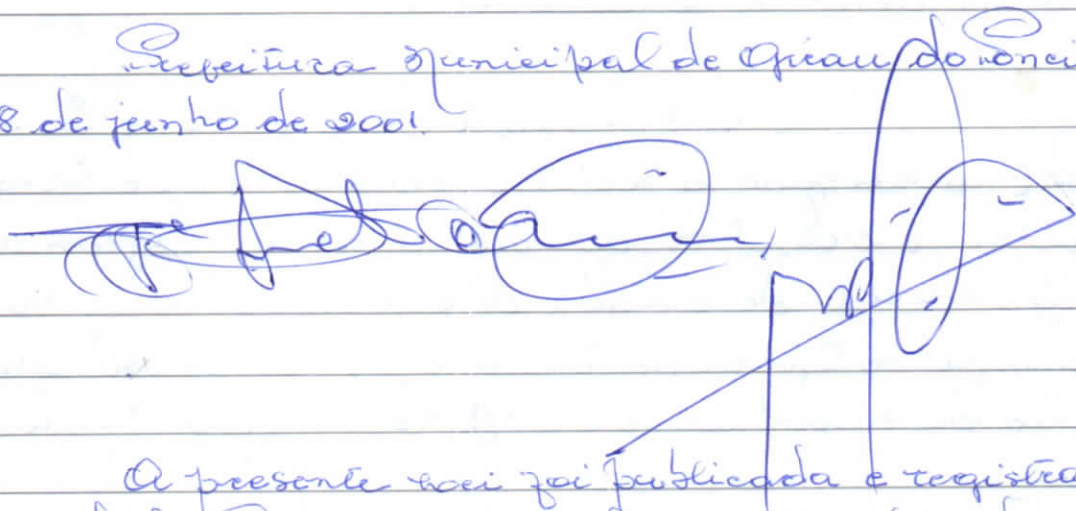 Prefeitura Municipal de Girau do Ponci
8 de junho de 2001.
A presente Lei foi publicada e registra